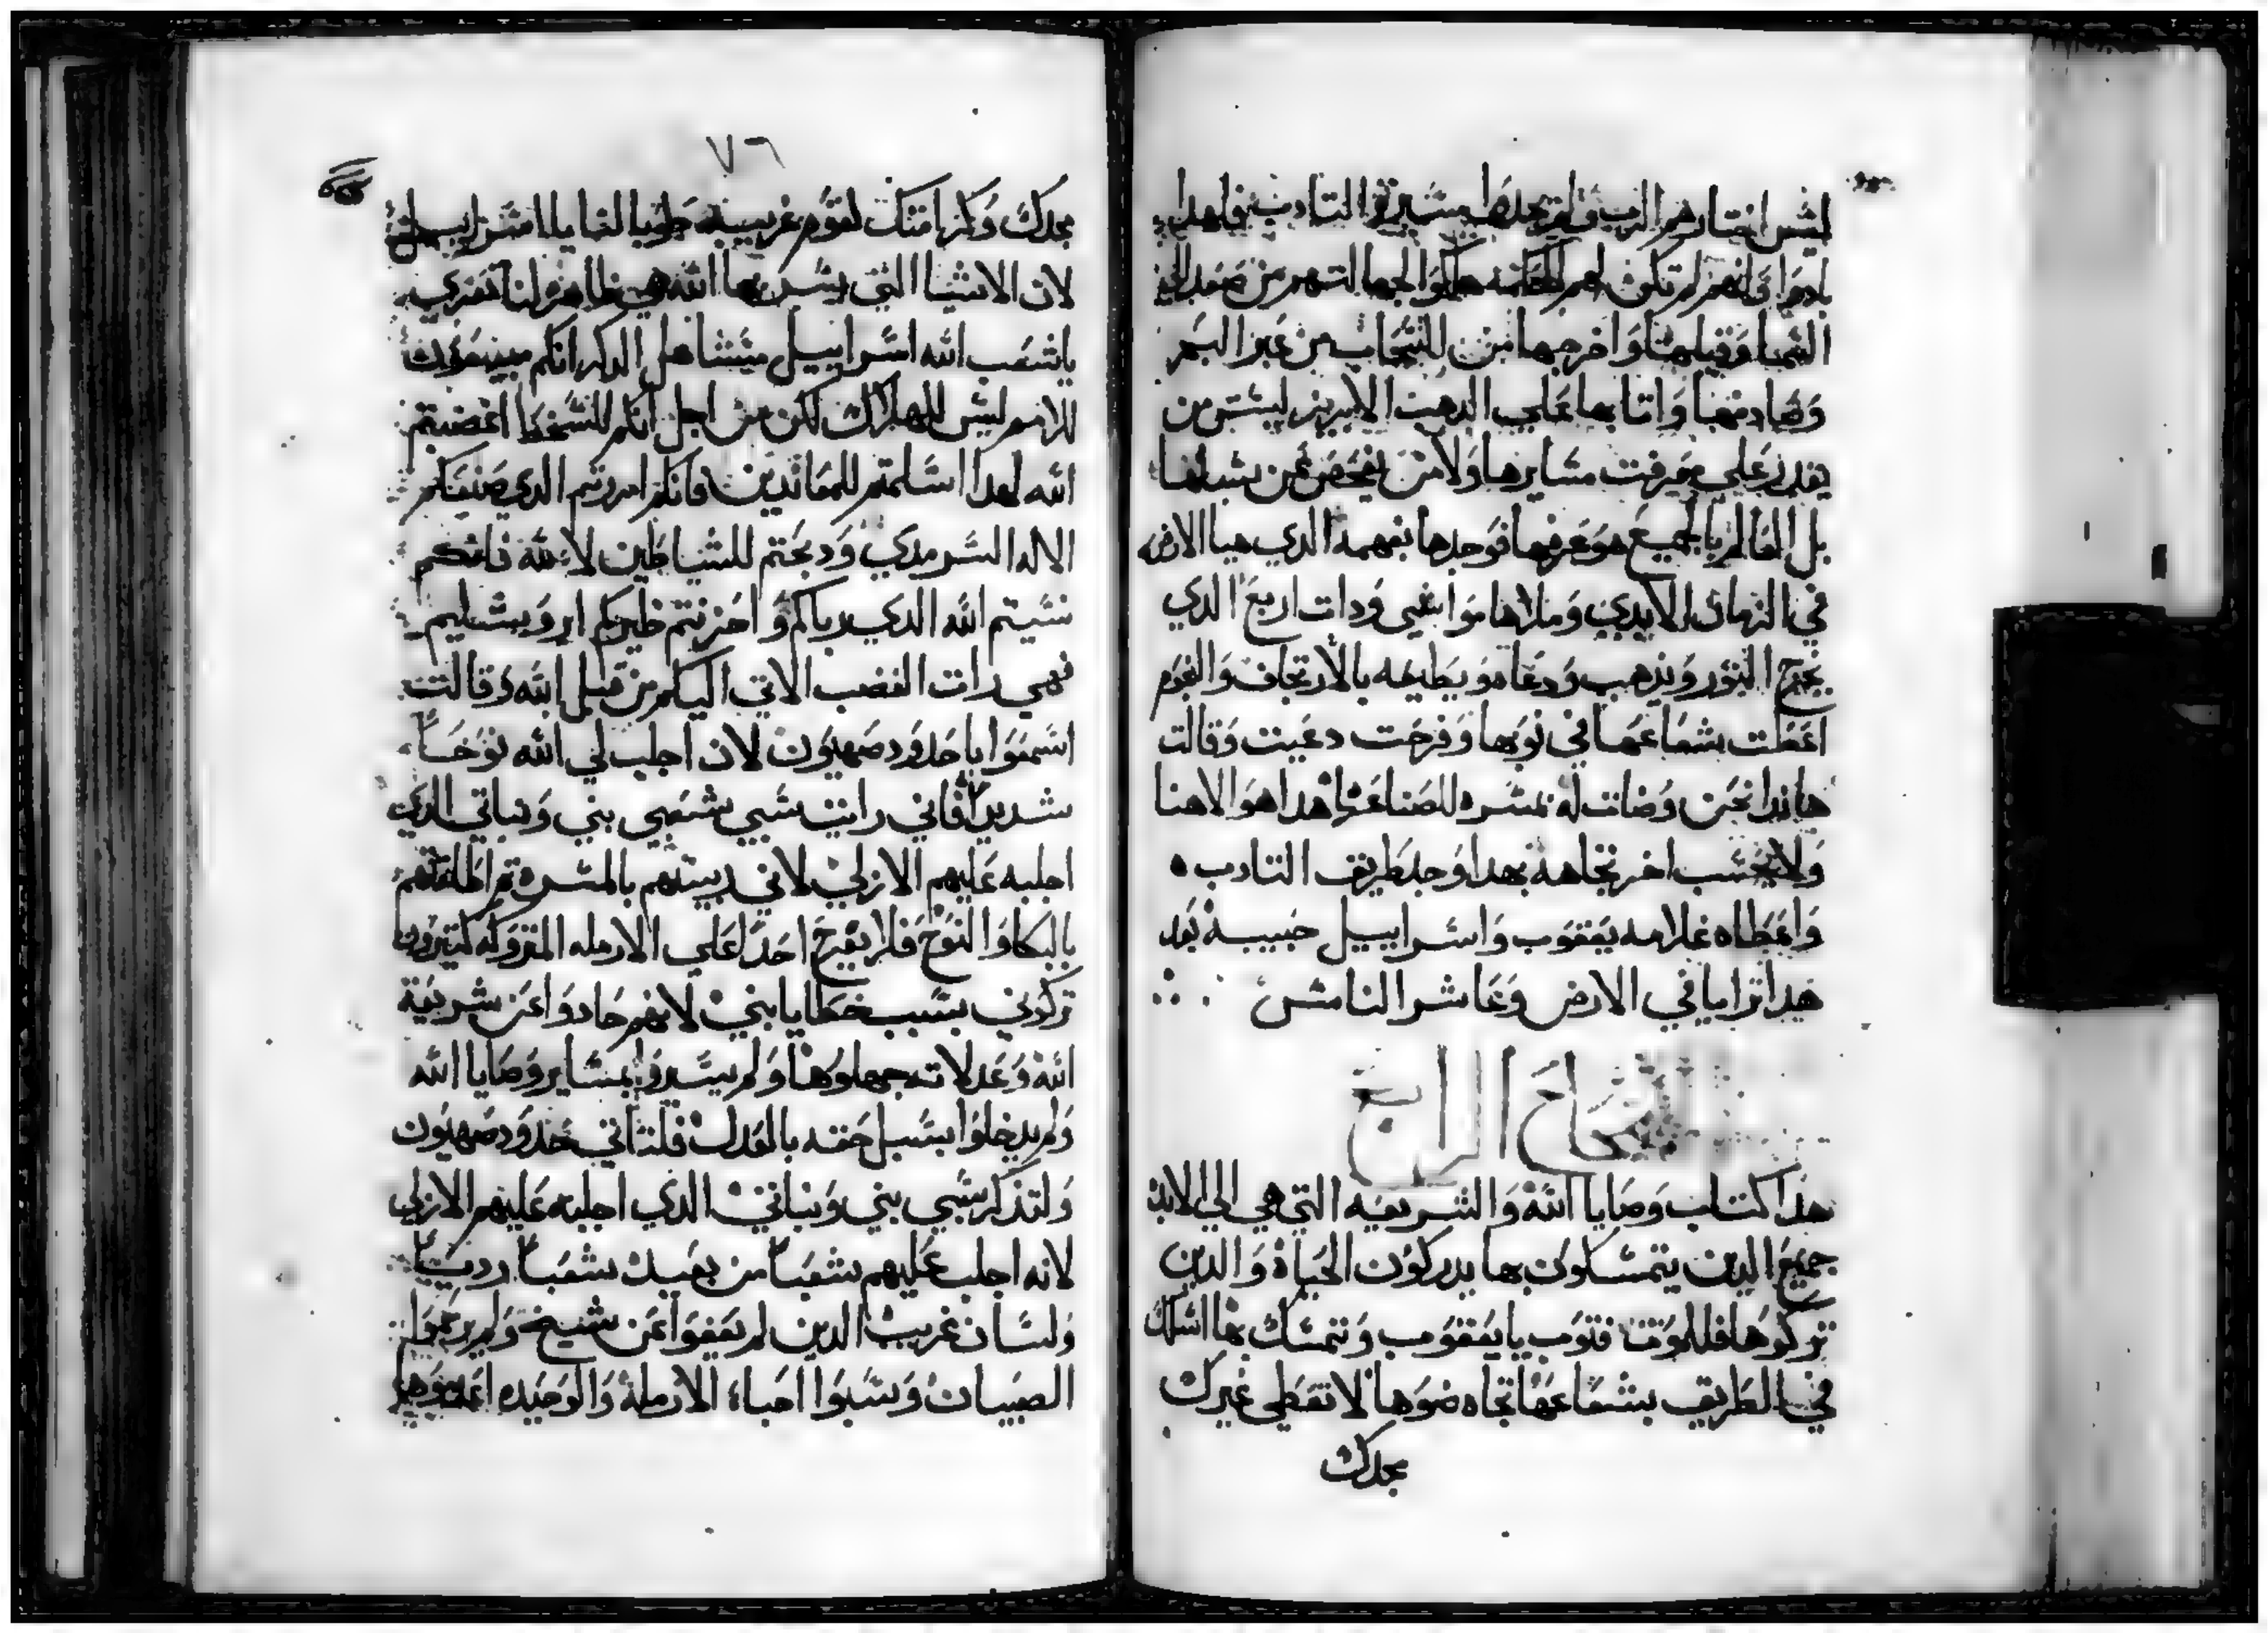 ليس اختارهم الرب ولم يجد طريق التادب فلهدا
بادوا وانهم لم تكون لهم الحكمه هلكوا لجهالتهم من صعد الي
السما وقبلها واخرجها من السحاب من عبر البحر
وصادفها واتا بها علي الدهب الابريز ليس من
يقدر علي معرفت مسايرها ولا من يفحص عن سبلها
بل العالم بالجميع هو عرفها فوجدها بفهمه الذي هيا الارض
في الزمان الابدي وملاها مواشي ودات اربع الدي
يخرج النور ويدهب ودعاه ويطيعه بالارتجاف والنجوم
اعطت بشعاعها في نوبها وفرحت دعيت وقالت
هاندا نحن وضات له بمسره للصناعها هدا هو الاهنا
ولا يحسب اخر تجاهه بهدا وجد طريق التادب
واعطاه غلامه يعقوب واسراييل حبيبه بعد
هدا ترايا في الارض وعاشر الناس
الاصحاح الرابع
هدا كتاب وصايا الله والشريعه التي هي الي الابد
جميع الدين يتمسكون بها يدركون الحياة والدين
تركوها فللموت فتوب يا يعقوب وتمسك بها اسلك
في الطريق بشعاعها تجاه ضوها لا تعطي غيرك
مجدك
٧٦
مجدك وكرامتك لقوم غريبه طوبا لنا يا اسراييل
لان الاشيا التي يسر بها الله هي ظاهره لنا تعزي
يا شعب الله اسراييل متشاهل الدكر انكم مبيعون
للامم ليس للهلاك لكن من اجل انكم للسخط اغضبتم
الله لهدا اسلمتم للمعاندين فانكم امررتم الدي صنعكم
الاله السرمدي ودبحتم للشياطين لا لله فانكم
نسيتم الله الدي رباكم واحزنتم ظيركم ايروشليم
فهي رات الغضب الاتي اليكم من قبل الله وقالت
اسمعوا يا حدود صهيون لان اجلب لي الله نوحا
شديدا فاني رايت سبي شعبي بني وبناتي الدي
اجلبه عليهم الازلي لاني ربيتهم بالمسره ثم اطلقتهم
بالبكا والنوح فلا يفرح احدا علي الارمله المتروكه لكثيرون
تركوني بسبب خطايا بني لانهم حادوا عن شريعة
الله وعدلاته جهلوها ولم يسيروا بمساير وصايا الله
ولم يدخلوا بسبل حقه بالعدل فلتاتي حدود صهيون
ولتدكر سبي بني وبناتي الدي اجلبه عليهم الازلي
لانه اجلب عليهم شعبا من بعيد شعبا رديا
ولسان غريب الدين لم يعفوا عن شيخ ولم يرحموا
الصبيان وسبوا احباء الارملة والوحيده